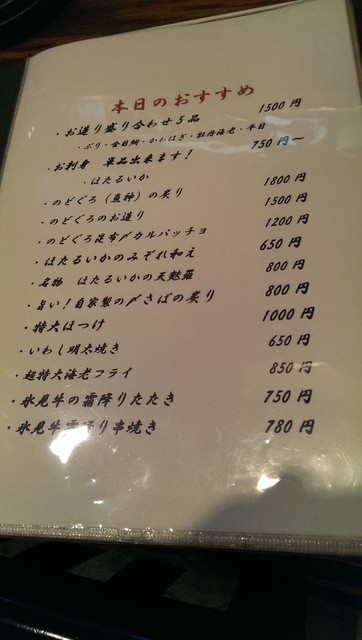 本日のおすすめ
・お造り盛り合わせ5品 1500円
・ぶり・金目鯛・かわはぎ・牡丹海老・平目
・お刺身 単品出来ます! 750円~
・ほたるいか
・のどぐろ(魚神)の炙り 1800円
・のどぐろのお造り 1500円
・のどぐろ昆布〆カルパッチョ 1200円
・ほたるいかのみぞれ和え 650円
・名物 ほたるいかの天麩羅 800円
・旨い!自家製の〆さばの炙り 800円
・特大ほっけ 1000円
・いわし明太焼き 650円
・超特大海老フライ 850円
・氷見牛の霜降りたたき 750円
・氷見牛霜降り串焼き 780円